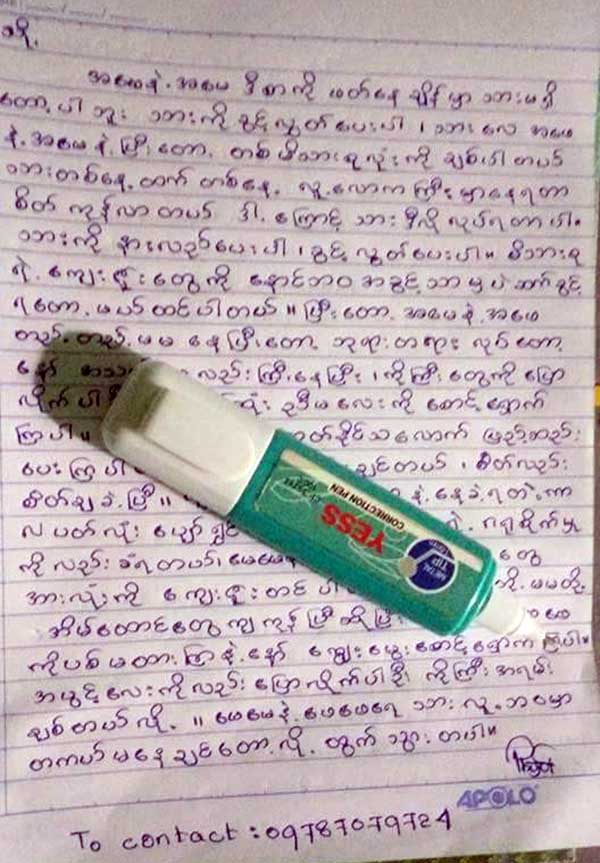 သို့
အဖေနဲ့ အမေ ဒီစာကို ဖတ်နေချိန်မှာ သားမရှိ
တော့ပါဘူး သားကို ခွင့်လွှတ်ပေးပါ ၊ သားလေ အဖေ
နဲ့ အမေနဲ့ ပြီးတော့ တစ်မိသားစုလုံးကို ချစ်ပါတယ်
သားတစ်နေ့ထက် တစ်နေ့ လူ့လောကကြီးမှာနေရတာ
စိတ်ကုန်လာတယ် ဒါ့ကြောင့် သားဒီလိုလုပ်ရတာပါ။
သားကို နားလည်ပေးပါ ၊ ခွင့်လွှတ်ပေးပါ။ မိသားစု
ရဲ့ ကျေးဇူးတွေကို နောင်ဘဝ အခွင့်သာမှပဲ ဆက်ခွင့်
ရတော့မယ်ထင်ပါတယ် ။ ပြီးတော့ အဖေနဲ့ အမေ
တည်တည်မမနေပြီးတော့ ဘုရားတရားလုပ်တော့
နော် လည်းကြီးနေပြီး ၊ ကိုကြီးတွေကို ပြော
လိုက်ပါ ညီမလေးကို စောင့်ရှောက်
ကြပါ။ တတ်နိုင်သလောက် ဖြည့်ဆည်း
ပေးကြပါ ချင်တယ် ၊ စိတ်လည်း
စိတ်ချခဲ့ပြီ ။ နဲ့ နေခဲ့ရတဲ့ကာ
လပတ်လုံး ပျော်ရွှင် ဂရုစိုက်မှု
ကိုလည်း ခံရတယ်၊ မေမေနဲ့ တွေ
အားလုံးကို ကျေးဇူးတင်ပါ တို့ မမတို့
အိမ်ထောင်တွေကျကုန်ပြီဆိုပြီး
ကိုပစ်မထားကြနဲ့နော် ကျွေးမွေးစောင့်ရှောက်ကြပါ။
အငယ်လေးကိုလည်း ပြောလိုက်ပါဦး ကိုကြီး အရမ်း
ချစ်တယ်လို့ ။ ဖေဖေနဲ့ မေမေရေ သား လူ့ဘဝမှာ
တကယ်မနေချင်တော့လို့ ထွက်သွားတာပါ။
APOLO
To contact : 09787079724
YESS
CORRECTION PEN
METAL
TIP